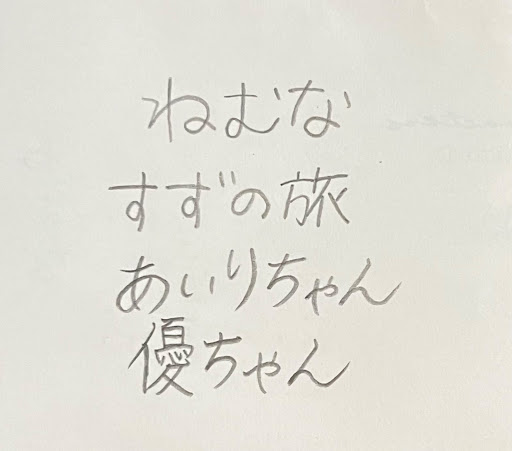 ねむな
すずの旅
あいりちゃん
優ちゃん